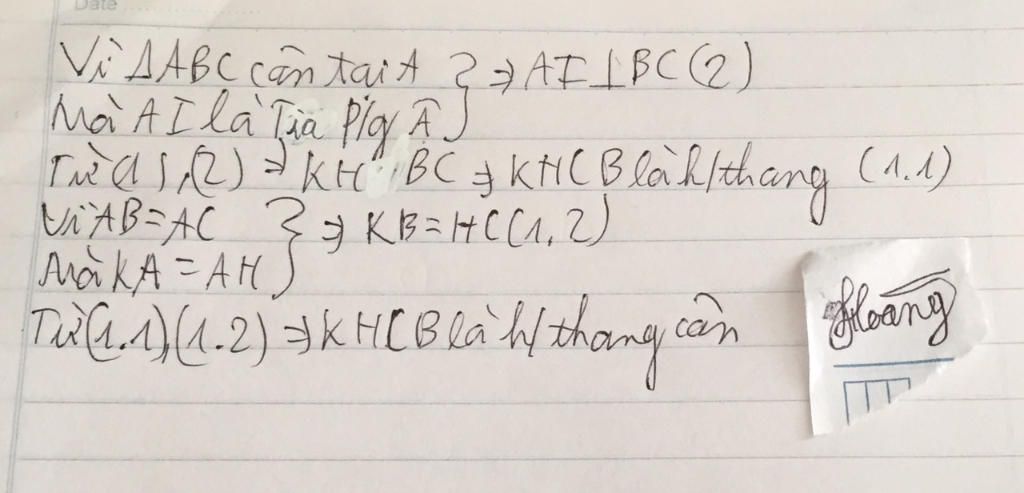 Date
Vì ΔABC cân tại A } ⇒ AI⊥BC (2)
Mà AI là Tia p/g Â
Từ (1), (2) ⇒ KH // BC ⇒ KHCB là h/thang (1.1)
Vì AB = AC } ⇒ KB = HC (1,2)
Mà KA = AH
Từ (1.1), (1.2) ⇒ KHCB là h/thang cân
Hoàng